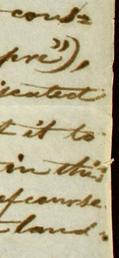 cons=
pre"),
icated
t it to
in this
of course
land